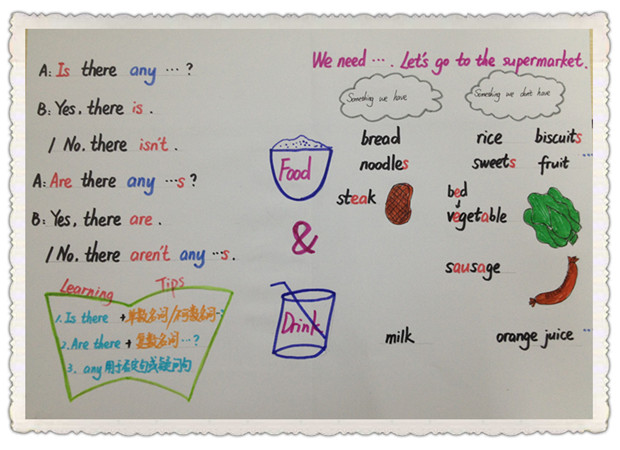 A: Is there any … ?
B: Yes, there is .
/ No, there isn't .
A: Are there any …s ?
B: Yes, there are .
/ No, there aren't any …s .
Learning Tips
1. Is there + 单数名词/不可数名词…?
2. Are there + 复数名词 …?
3. any 用于否定句或疑问句
Food
&
Drink
We need … . Let's go to the supermarket.
Something we have
Something we don't have
bread
rice
biscuits …
noodles
sweets
fruit …
steak
bed
vegetable
sausage
milk
orange juice …